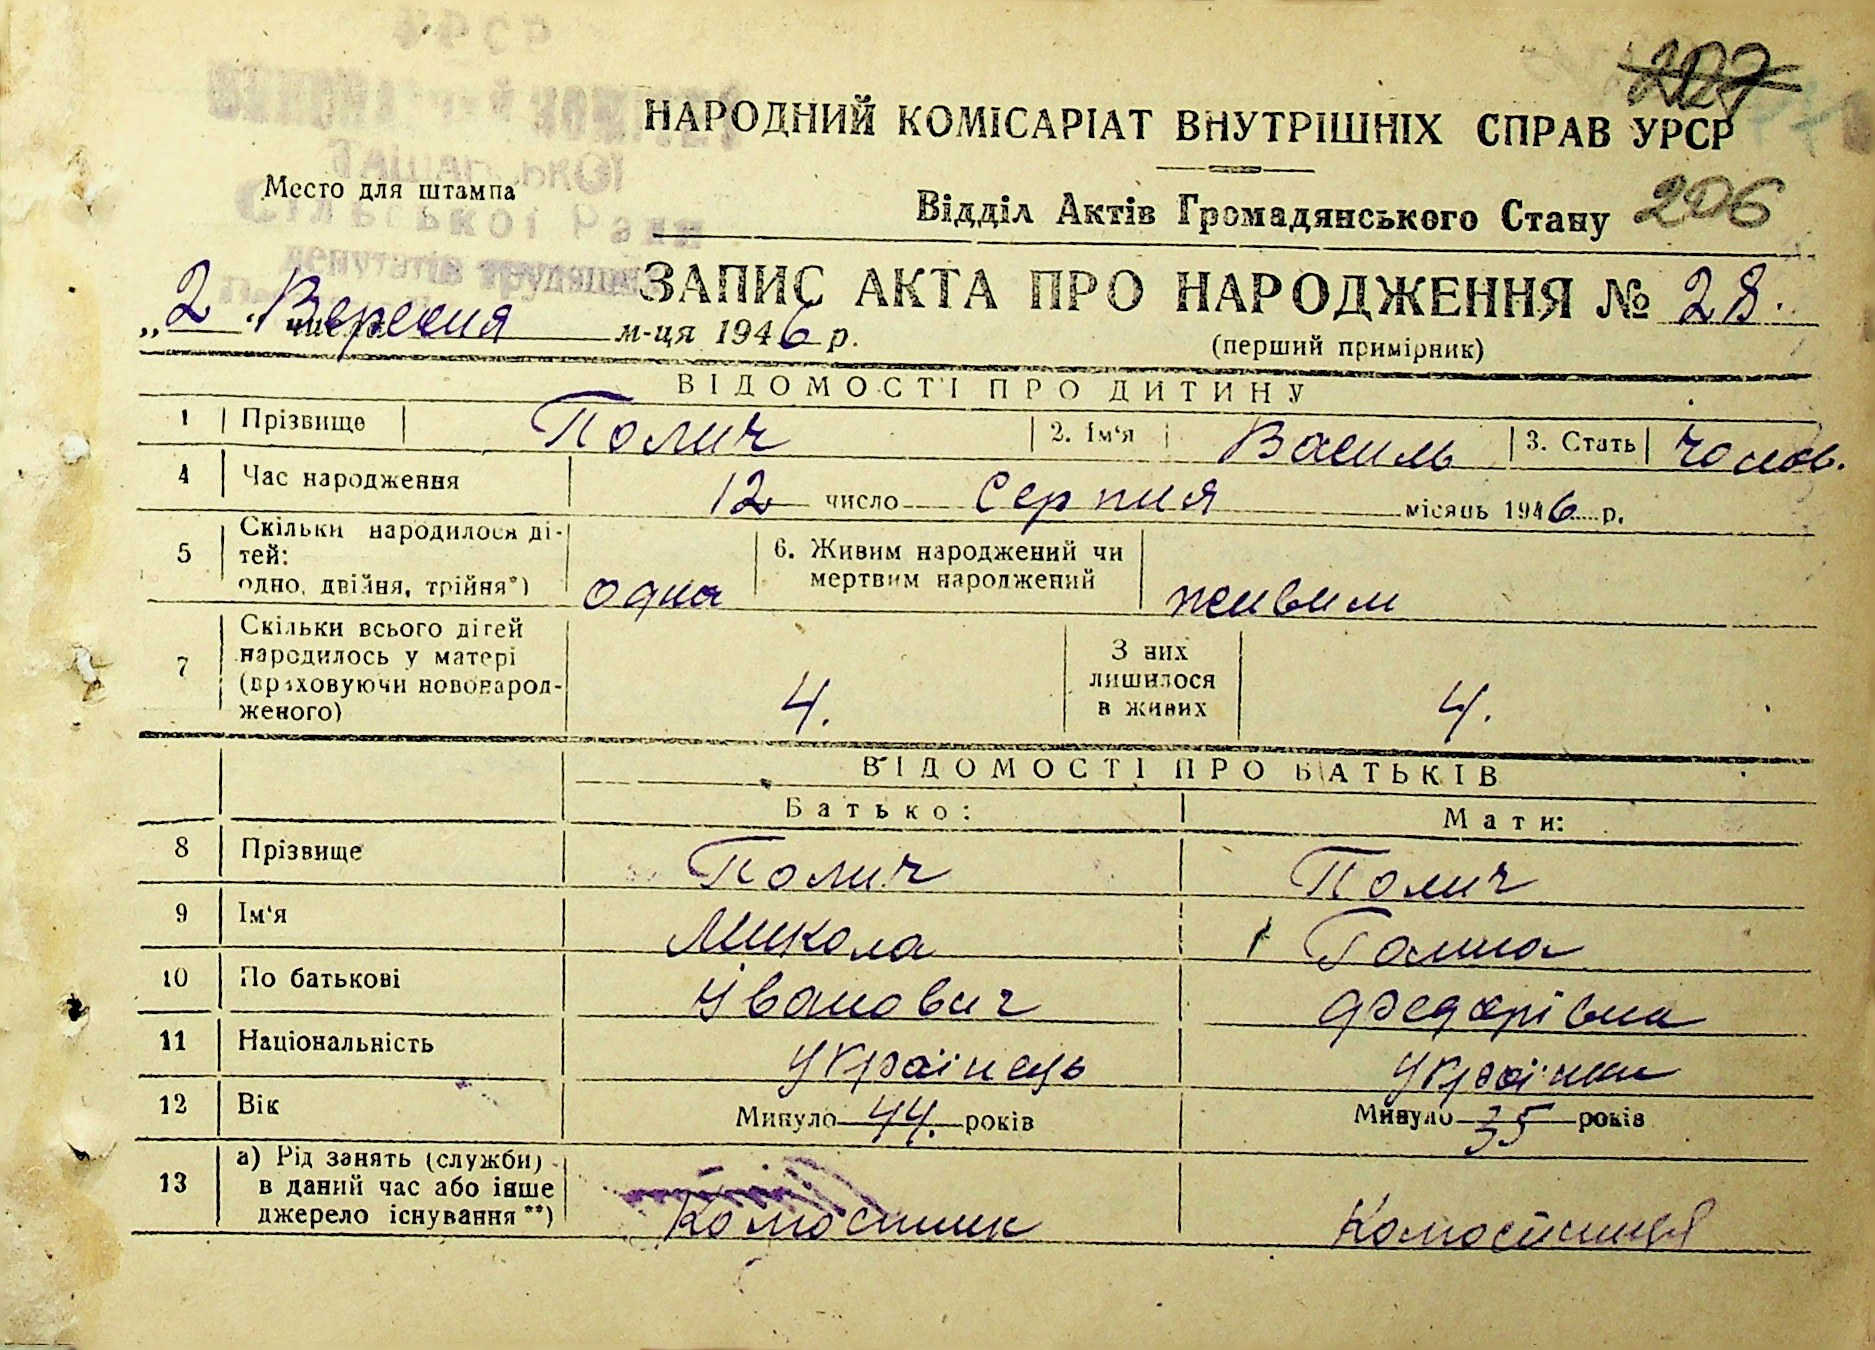 207
НАРОДНИЙ КОМІСАРІАТ ВНУТРІШНІХ СПРАВ УРСР
Место для штампа
Відділ Актів Громадянського Стану 206
Сільської Ради
депутатів трудящих
ЗАПИС АКТА ПРО НАРОДЖЕННЯ № 28.
„2" числа Вересня м-ця 1946 р.
(перший примірник)
ВІДОМОСТІ ПРО ДИТИНУ
1 Прізвище Полич 2. Ім'я Василь 3. Стать чолов.
4 Час народження 12 число Серпня місяць 1946 р.
5 Скільки народилося ді-
тей:
одно, двійня, трійня*) одна
6. Живим народжений чи
мертвим народжений живим
7 Скільки всього дітей
народилось у матері
(враховуючи новонарод-
женого) 4.
З них
лишилося
в живих 4.
ВІДОМОСТІ ПРО БАТЬКІВ
Батько: Мати:
8 Прізвище Полич Полич
9 Ім'я Микола Галина
10 По батькові Іванович Федорівна
11 Національність Українець Українка
12 Вік Минуло 44. років Минуло 35 років
13 а) Рід занять (служби)
в даний час або інше
джерело існування**)